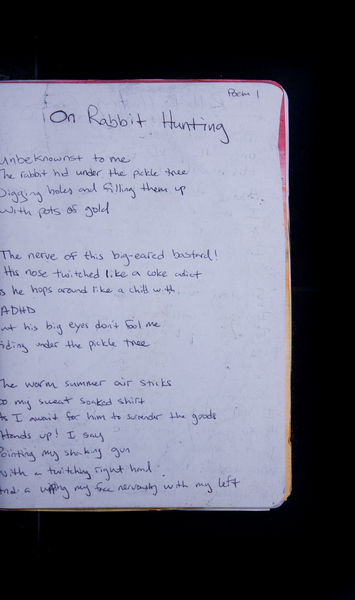 Poem 1
On Rabbit Hunting
Unbeknownst to me
The rabbit hid under the pickle tree
Digging holes and filling them up
With pots of gold
The nerve of this big-eared bastard!
His nose twitched like a coke adict
As he hops around like a child with
ADHD
But his big eyes don't fool me
Hiding under the pickle tree
The warm summer air sticks
to my sweat soaked shirt
As I await for him to surrender the goods
Hands up! I say
Pointing my shaking gun
With a twitching right hand
And a my face nervously with my left